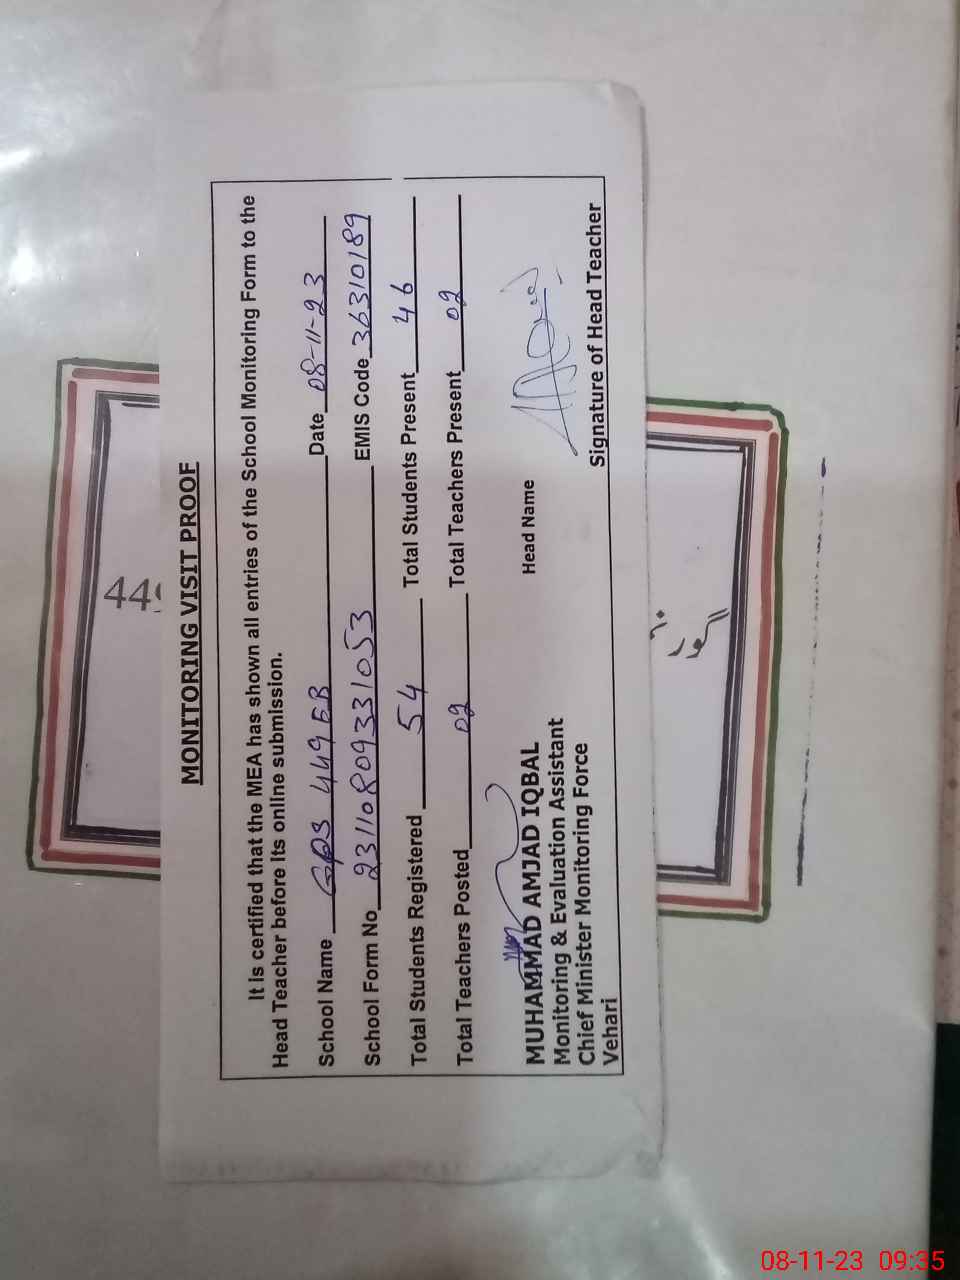 MONITORING VISIT PROOF
It is certified that the MEA has shown all entries of the School Monitoring Form to the
Head Teacher before Its online submission.
School Name GPS 449 EB Date 08-11-23
School Form No 23110809331053 EMIS Code 36310189
Total Students Registered 54 Total Students Present 46
Total Teachers Posted 02 Total Teachers Present 02
MUHAMMAD AMJAD IQBAL Head Name
Monitoring & Evaluation Assistant
Chief Minister Monitoring Force
Vehari Signature of Head Teacher
449
گور
08-11-23 09:35